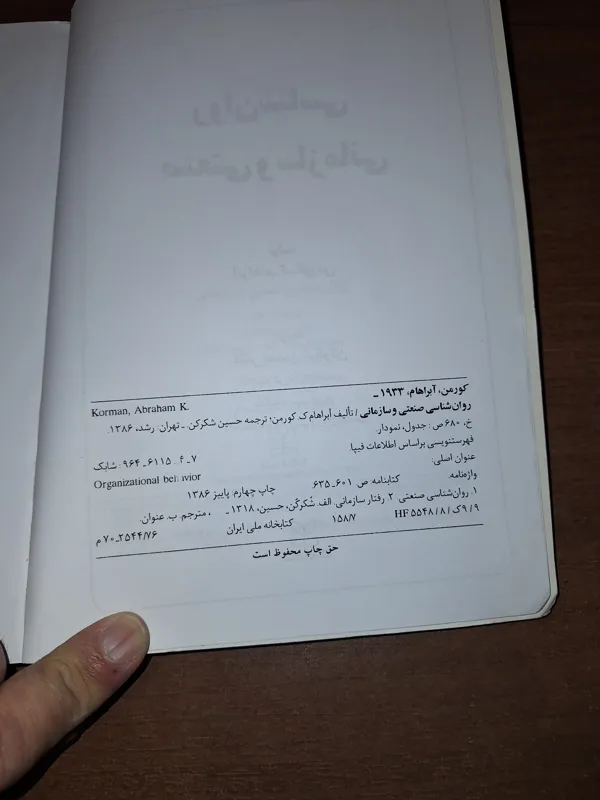 کورمن، آبراهام، ۱۹۳۳ـ
Korman, Abraham K.
روان‌شناسی صنعتی و سازمانی / تألیف آبراهام ک. کورمن؛ ترجمه حسین شکرکن. ـ تهران: رشد، ۱۳۸۶.
خ، ۶۸۰ ص: جدول، نمودار.
فهرستنویسی براساس اطلاعات فیپا.
شابک: ۹۶۴ـ۶۱۱۵ـ
عنوان اصلی:
Organizational behavior
واژه‌نامه. کتابنامه: ص. ۶۰۱ـ۶۳۵ چاپ چهارم: پاییز ۱۳۸۶
۱. روان‌شناسی صنعتی. ۲. رفتار سازمانی. الف. شُکرکُن، حسین، ۱۳۱۸ـ ، مترجم. ب. عنوان.
۹ک۹/ ۸/ HF ۵۵۴۸ ۱۵۸/۷ کتابخانه ملی ایران ۲۵۴۴/۷۶ـ۷۰م
حق چاپ محفوظ است
روان‌شناسی
صنعتی و سازمانی